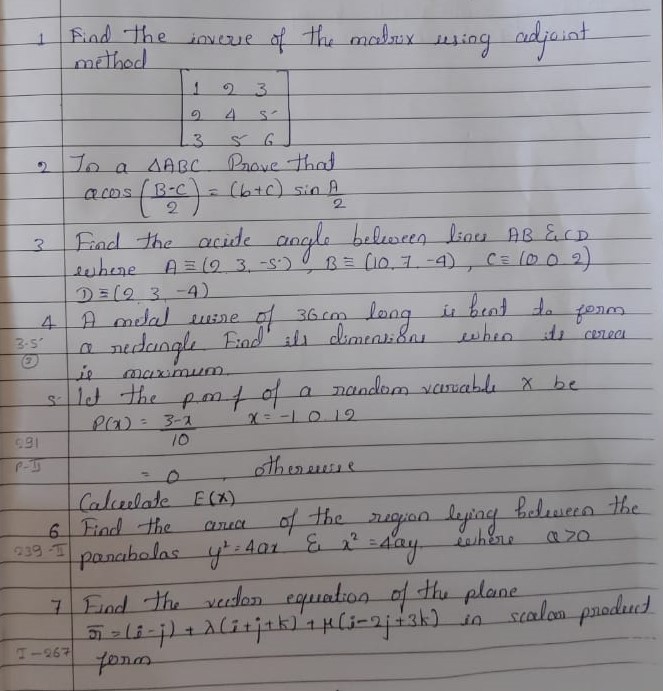 1 Find the inverse of the matrix using adjoint
method
[1 2 3
2 4 5
3 5 6]
2 In a △ABC Prove that
a cos (B-C/2) = (b+c) sin A/2
3 Find the acute angle between lines AB & CD
where A ≡ (2, 3, -5), B ≡ (10, 7, -4), C ≡ (0 0 2)
D ≡ (2, 3, -4)
4 A metal wire of 36 cm long is bent to form
3.5 (2) a rectangle Find its dimensions when its area
is maximum.
5. let the p.m.f of a random variable x be
P(x) = 3-x/10 x = -1 0 1 2
291
P-II = 0, otherwise
Calculate E(x)
6 Find the area of the region lying between the
239-II parabolas y² = 4ax & x² = 4ay. where a>0
7 Find the vector equation of the plane
r̄ = (i-j) + λ(i+j+k) + μ(i-2j+3k) in scalar product
I-267 form